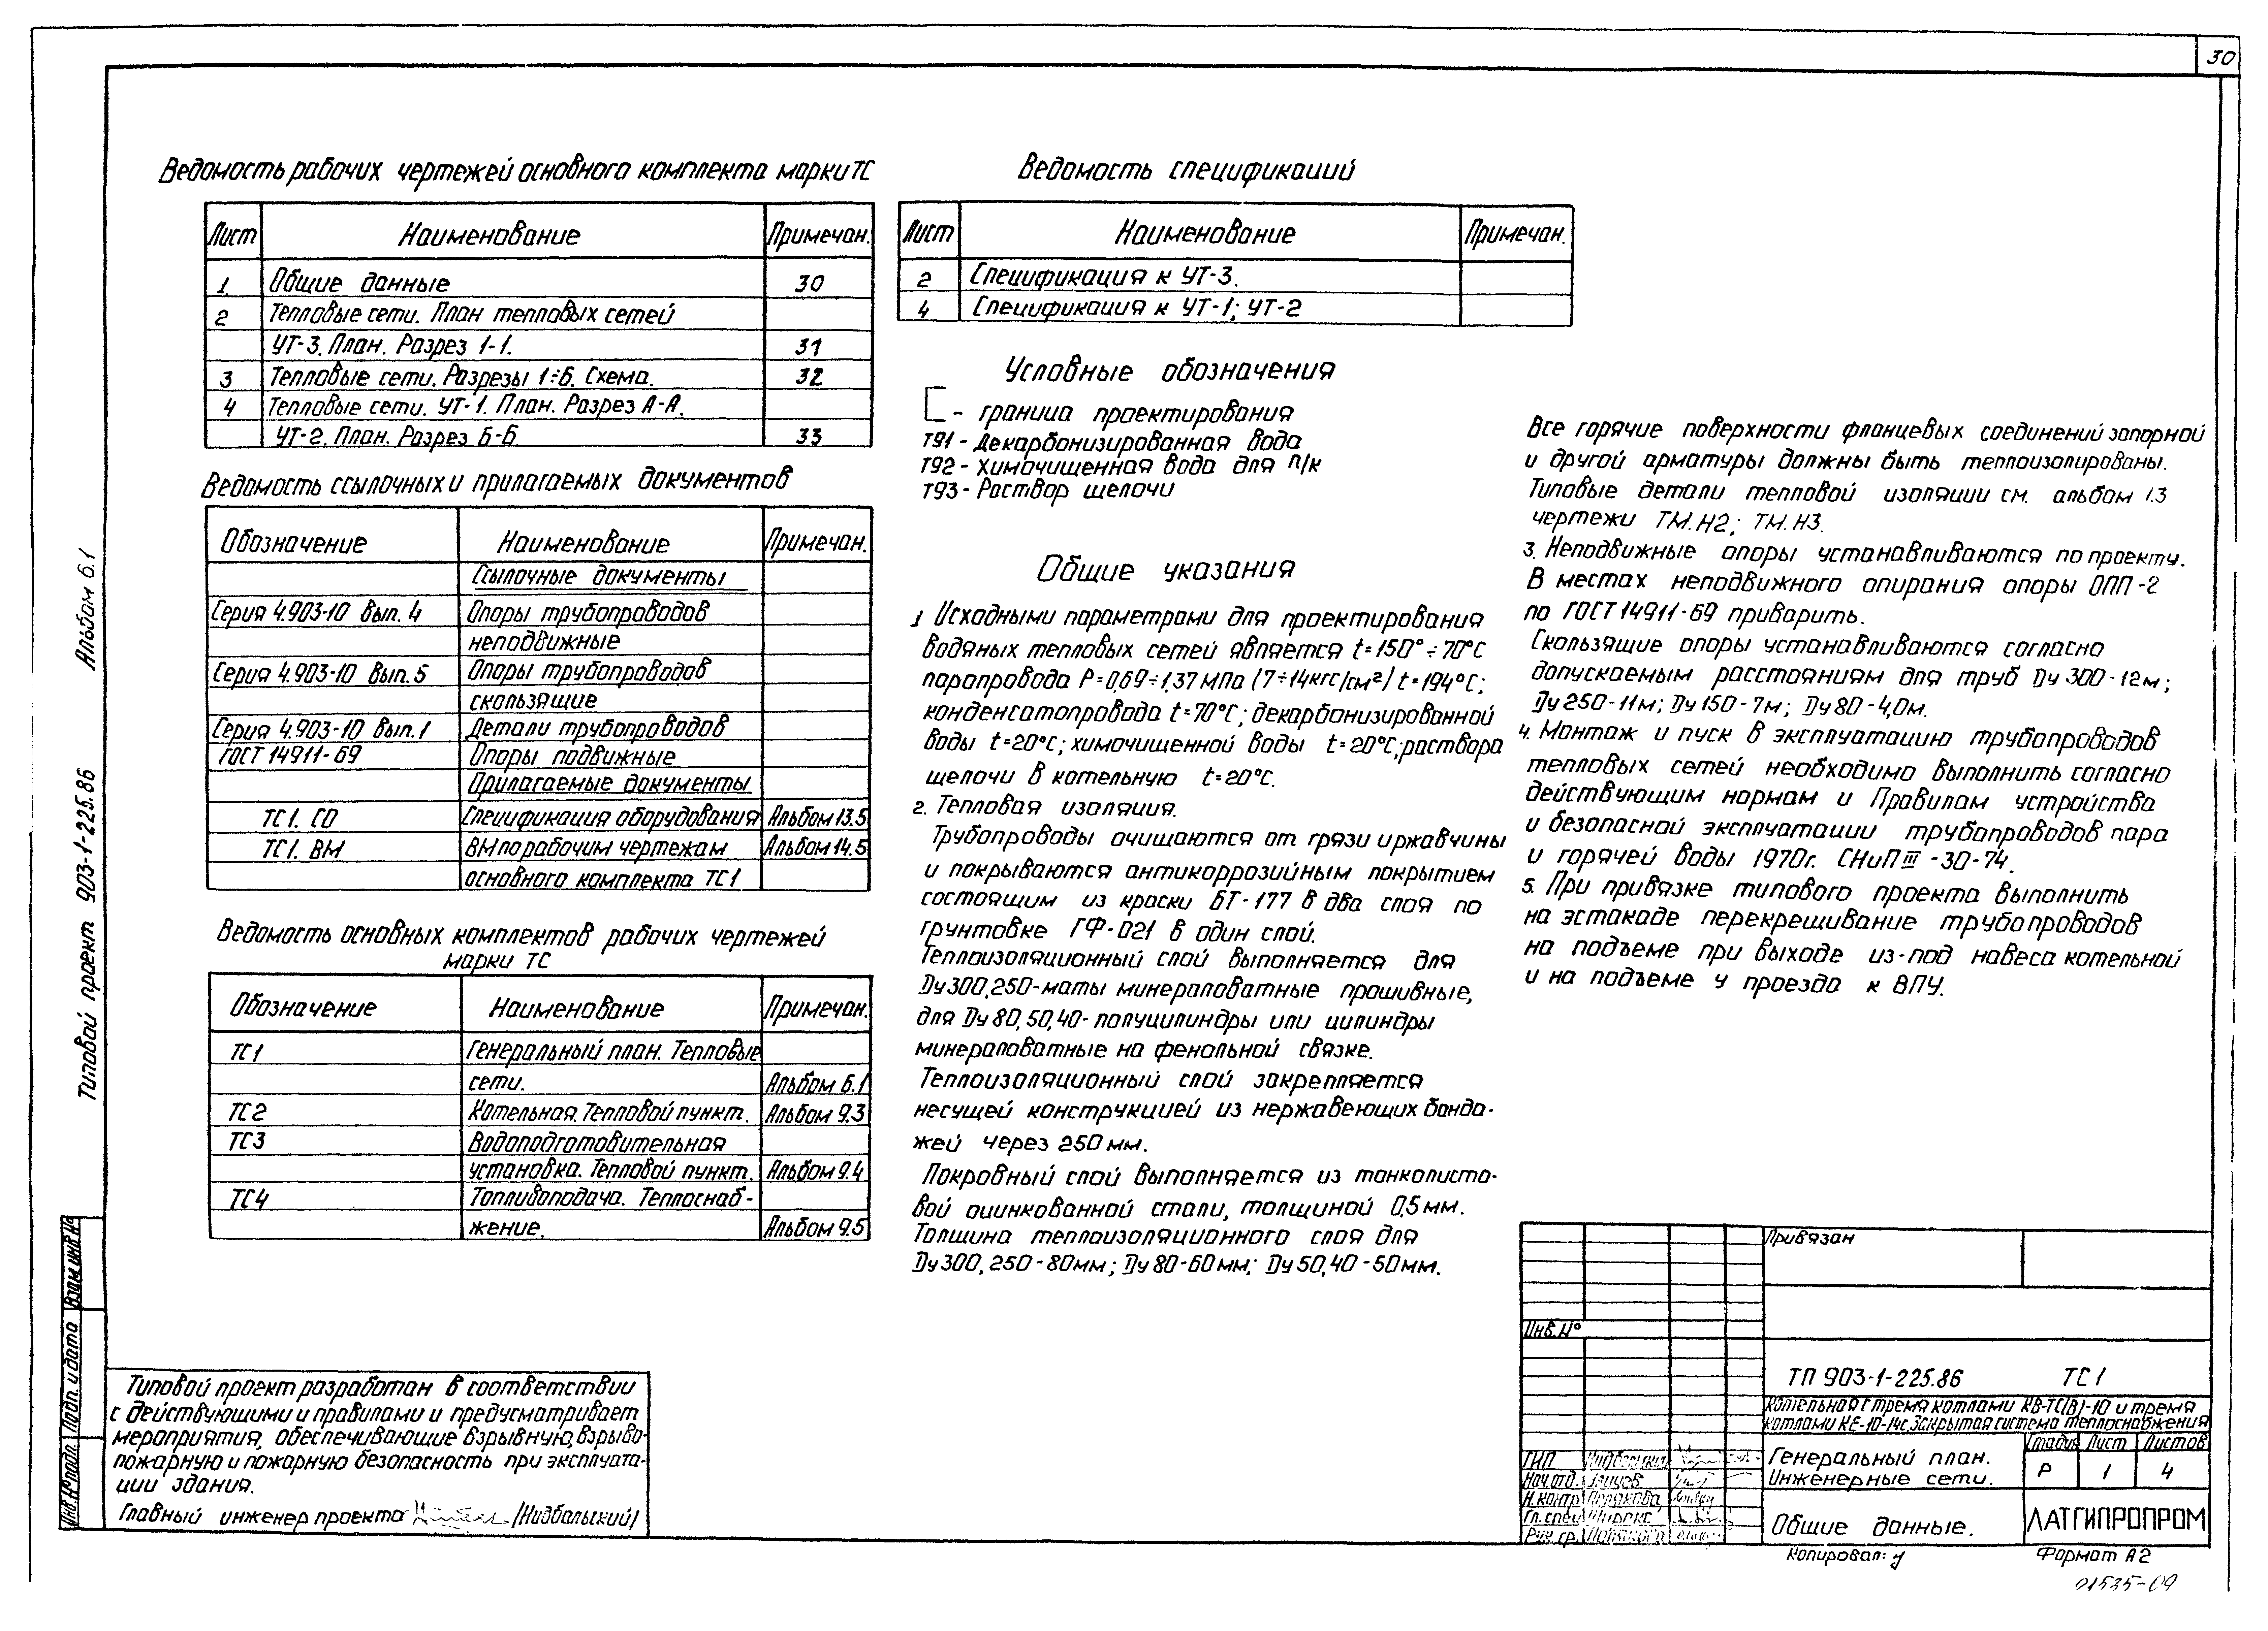 30
Ведомость рабочих чертежей основного комплекта марки ТС
Лист Наименование Примечан.
1. Общие данные 30
2 Тепловые сети. План тепловых сетей
УТ-3. План. Разрез 1-1. 31
3 Тепловые сети. Разрезы 1÷6. Схема. 32
4 Тепловые сети. УТ-1. План. Разрез А-А.
УТ-2. План. Разрез Б-Б 33
Ведомость ссылочных и прилагаемых документов
Обозначение Наименование Примечан.
Ссылочные документы
Серия 4.903-10 Вып. 4 Опоры трубопроводов
неподвижные
Серия 4.903-10 Вып. 5 Опоры трубопроводов
скользящие
Серия 4.903-10 Вып. 1 Детали трубопроводов
ГОСТ 14911-69 Опоры подвижные
Прилагаемые документы
ТС1. СО Спецификация оборудования Альбом 13.5
ТС1. ВМ ВМ по рабочим чертежам Альбом 14.5
основного комплекта ТС1
Ведомость основных комплектов рабочих чертежей
марки ТС
Обозначение Наименование Примечан.
ТС1 Генеральный план. Тепловые
сети. Альбом 6.1
ТС2 Котельная. Тепловой пункт. Альбом 9.3
ТС3 Водоподготовительная
установка. Тепловой пункт. Альбом 9.4
ТС4 Топливоподача. Теплоснаб-
жение. Альбом 9.5
Ведомость спецификаций
Лист Наименование Примечан.
2 Спецификация к УТ-3.
4 Спецификация к УТ-1; УТ-2
Условные обозначения
- граница проектирования
Т91 - Декарбонизированная вода
Т92 - Химочищенная вода для п/к
Т93 - Раствор щелочи
Общие указания
1 Исходными параметрами для проектирования
водяных тепловых сетей является t=150°÷70°С
паропровода Р=0,69÷1,37 МПа (7÷14кгс/см²) t=194°С;
конденсатопровода t=70°С; декарбонизированной
воды t=20°С; химочищенной воды t=20°С; раствора
щелочи в котельную t=20°С.
2. Тепловая изоляция.
Трубопроводы очищаются от грязи и ржавчины
и покрываются антикоррозийным покрытием
состоящим из краски БТ-177 в два слоя по
грунтовке ГФ-021 в один слой.
Теплоизоляционный слой выполняется для
Ду 300, 250-маты минераловатные прошивные,
для Ду 80, 50, 40- полуцилиндры или цилиндры
минераловатные на фенольной связке.
Теплоизоляционный слой закрепляется
несущей конструкцией из нержавеющих банда-
жей через 250 мм.
Покровный слой выполняется из тонколисто-
вой оцинкованной стали, толщиной 0,5 мм.
Толщина теплоизоляционного слоя для
Ду 300, 250-80мм; Ду 80-60мм; Ду 50, 40-50мм.
Все горячие поверхности фланцевых соединений запорной
и другой арматуры должны быть теплоизолированы.
Типовые детали тепловой изоляции см. альбом 1.3
чертежи ТМ.Н2; ТМ.Н3.
3. Неподвижные опоры устанавливаются по проекту.
В местах неподвижного опирания опоры ОПП-2
по ГОСТ 14911-69 приварить.
Скользящие опоры устанавливаются согласно
допускаемым расстояниям для труб Ду 300-12м;
Ду 250-11м; Ду 150-7м; Ду 80-4,0м.
4. Монтаж и пуск в эксплуатацию трубопроводов
тепловых сетей необходимо выполнить согласно
действующим нормам и Правилам устройства
и безопасной эксплуатации трубопроводов пара
и горячей воды 1970г. СНиП III-30-74.
5. При привязке типового проекта выполнить
на эстакаде перекрещивание трубопроводов
на подъеме при выходе из-под навеса котельной
и на подъеме у проезда к ВПУ.
Альбом 6.1
Типовой проект 903-1-225.86
Взам инв №
Подп. и дата
Инв. № подл.
Типовой проект разработан в соответствии
с действующими и правилами и предусматривает
мероприятия, обеспечивающие взрывную, взрыво-
пожарную и пожарную безопасность при эксплуата-
ции здания.
Главный инженер проекта /Нидбальский/
Привязан
Инв. №
ТП 903-1-225.86 ТС1
Котельная с тремя котлами КВ-ТС(В)-10 и тремя
котлами КЕ-10-14с. Закрытая система теплоснабжения
Генеральный план.
Инженерные сети.
Стадия Лист Листов
Р 1 4
ГИП
Нач.отд.
Н.контр
Гл.спец
Рук. гр.
Общие данные.
ЛАТГИПРОПРОМ
Копировал:
Формат А2